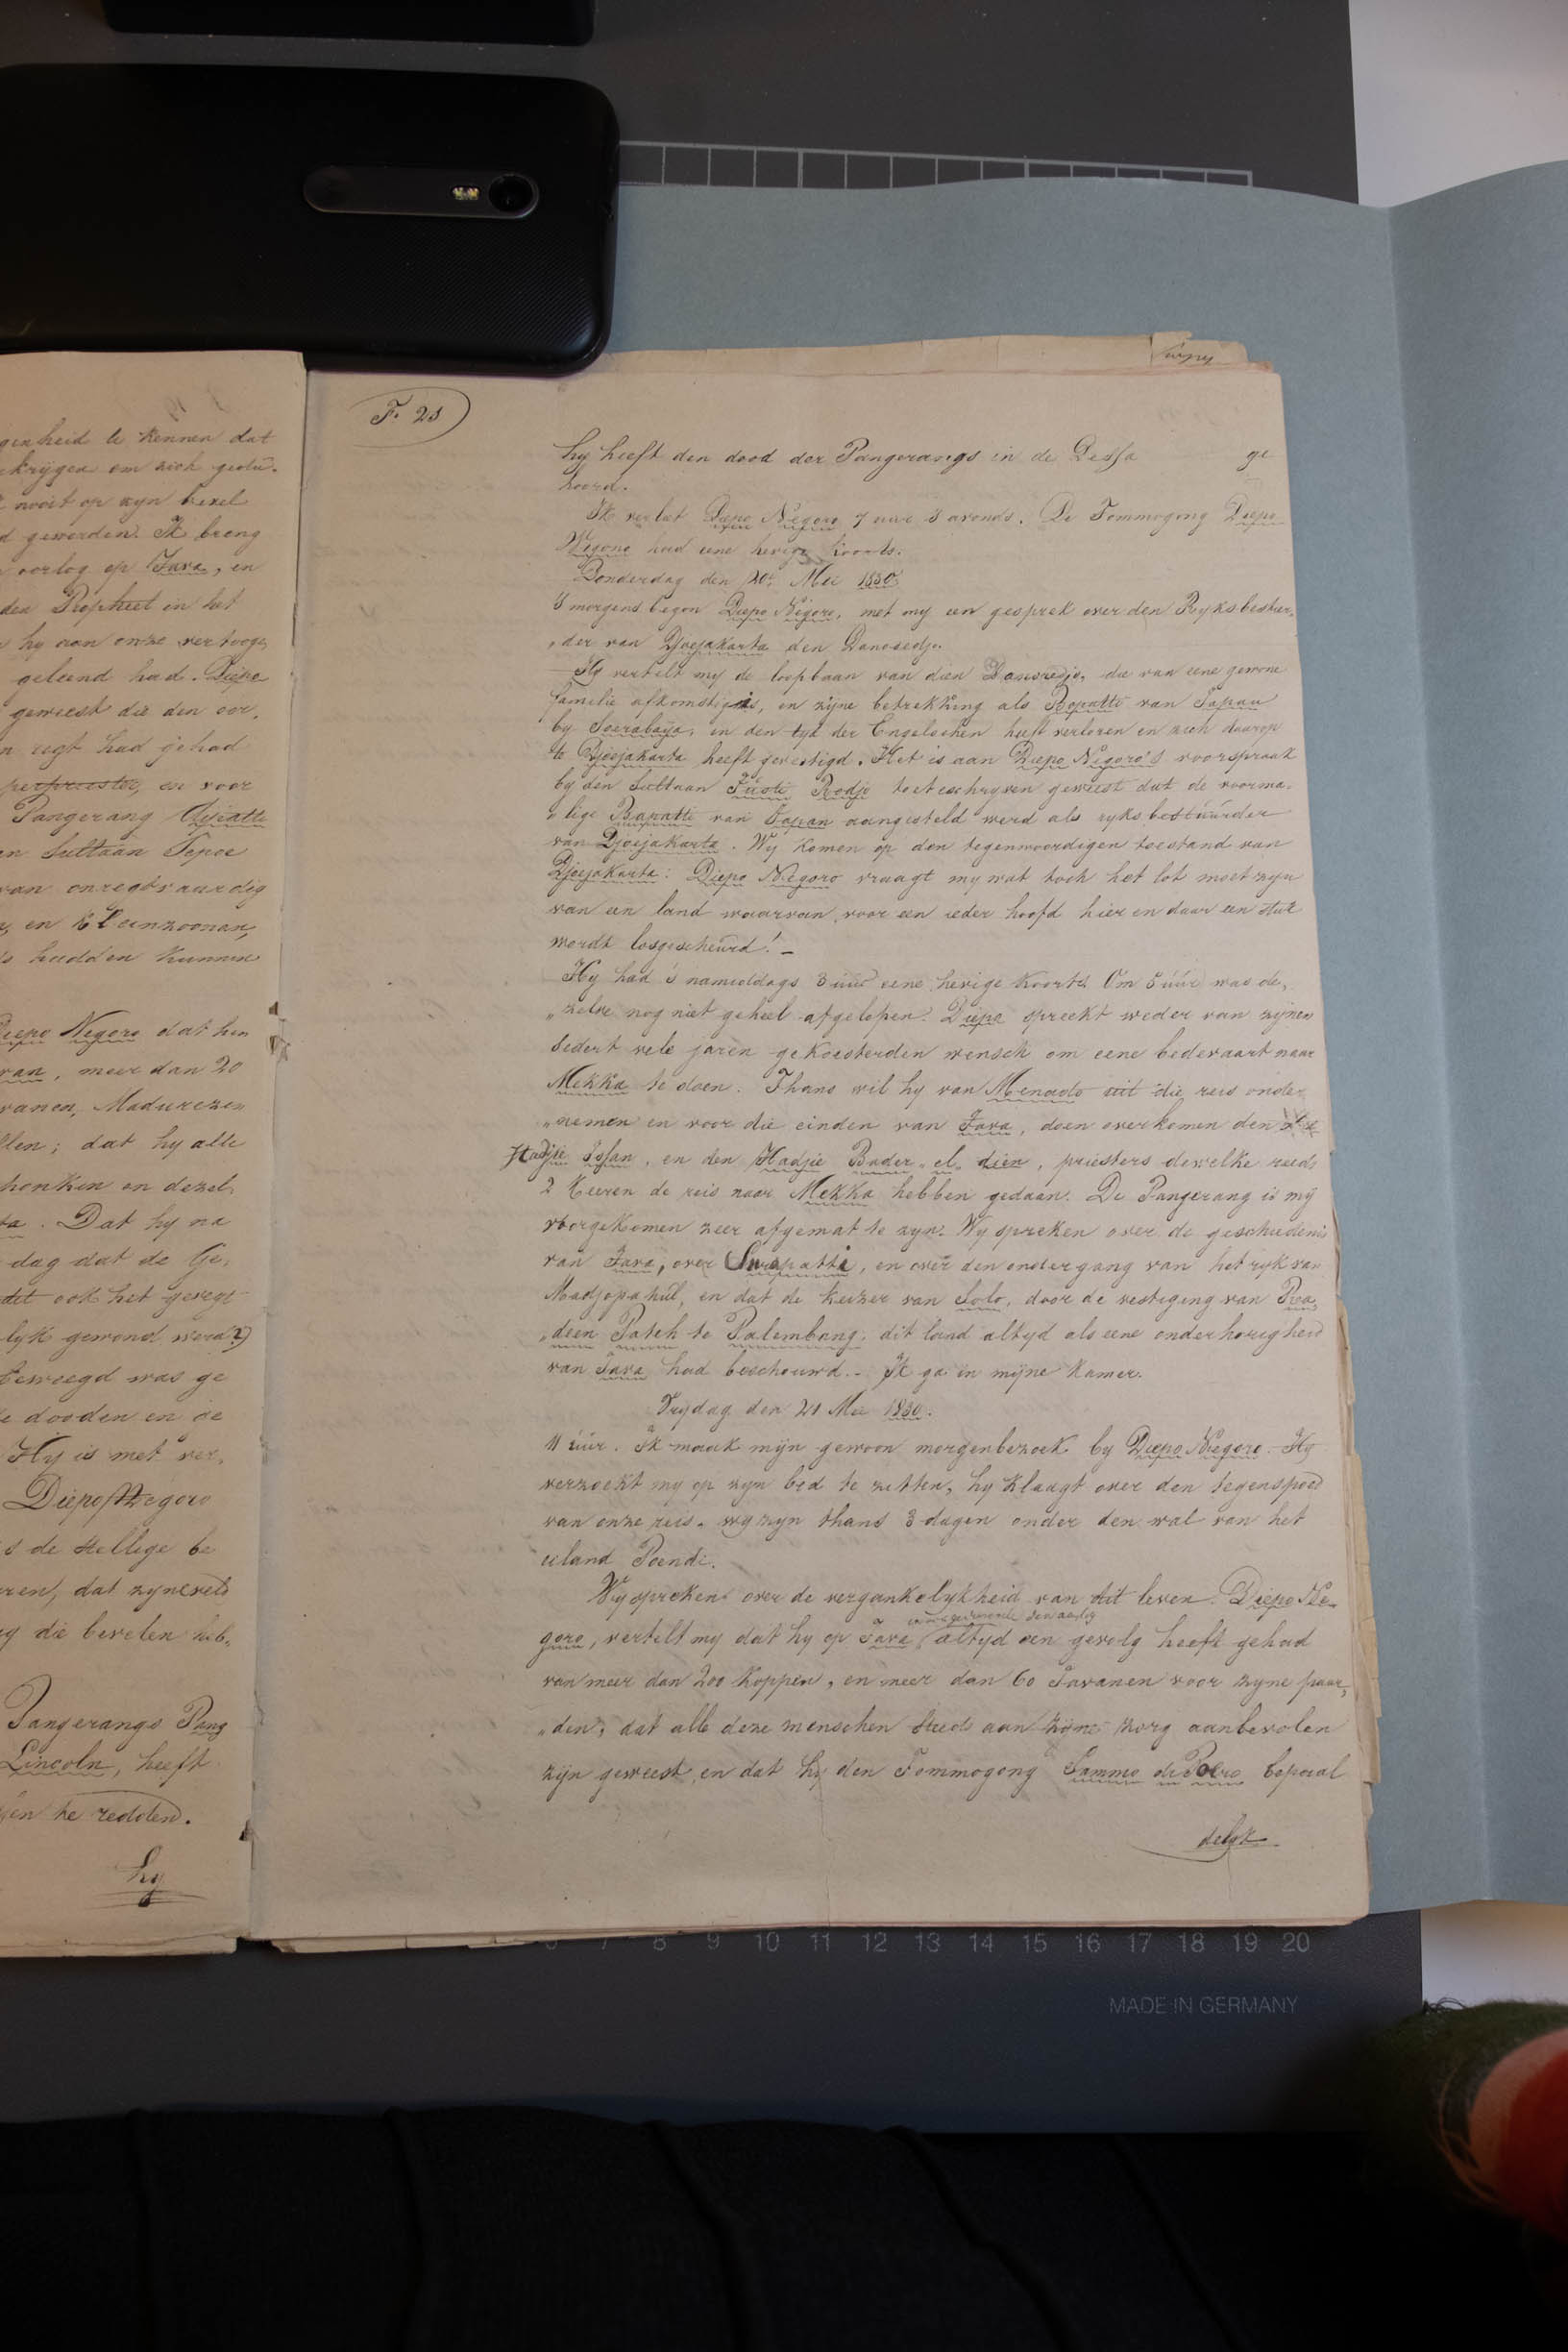 genheid te kennen dat
krijgen om zich
nooit op zyn bevel
geworden. Ik breng
oorlog op Java, en
den Propheet in het
hy aan onze vertoogen
geleend had. Diepo
geweest die den oor,
regt had gehad
en voor
Pangerang
Sultaan Sepoe
van onregtvaardig
en Kleinzoonen,
hadden kunnen
Diepo Negoro dat hem
meer dan 20
Madurezen
dat hy alle
schonken en dezel,
Dat hy na
dag dat de Ge,
dit ook het geregt
lyk gewond werd?)
beweegd was ge
dooden en de
Hy is met ver,
Diepo Negoro
de stellige be
dat zyn
die bevelen heb,
Pangerangs Pang
Lincoln, heeft
te redden.
hy
F. 21
hy heeft den dood der Pangerangs in de Dessa ge
hoord.
Ik verlat Diepo Negoro 7 ure 's avonds. De Tommogong Diepo
Negoro had eene hevige koorts.
Donderdag den 20e Mei 1830.
's morgens begon Diepo Negoro, met my een gesprek over den Ryksbestuur,
„der van Djocjakarta den Danoredjo.
Hy vertelt my de loopbaan van dien Danoredjo, die van eene gewone
familie afkomstig is, en zijne betrekking als Bopatti van Japan
by Soerabaya, in den tyd der Engelschen heeft verloren en zich daarop
te Djocjakarta heeft gevestigd. Het is aan Diepo Negoro's voorspraak
by den Sultaan Rodjo toeteschryven geweest dat de voorma,
„lige Bapatti van Japan aangesteld werd als ryksbestuurder
van Djocjakarta. Wy komen op den tegenwoordigen toestand van
Djocjakarta: Diepo Negoro vraagt my wat toch het lot moet zyn
van een land waarvan voor een ieder hoofd hier en daar een stuk
wordt losgescheurd! –
Hy had 's namiddags 3 uur eene hevige koorts. Om 5 úúr was de,
„zelve nog niet geheel afgelopen. Diepo spreekt weder van zijnen
sedert vele jaren gekoesterden wensch om eene bedevaart naar
Mekka te doen. Thans wil hy van Menado uit die reis onder
„nemen en voor die einden van Java, doen overkomen den
Hadjie Issan, en den Hadjie Bader el dien, priesters dewelke reeds
2 keeren de reis naar Mekka hebben gedaan. De Pangerang is mij
voorgekomen zeer afgemat te zyn. Wy spreken over de geschiedenis
van Java, over Surapatti, en over den ondergang van het ryk van
Madjopahit, en dat de keizer van Solo, door de vestiging van Ra,
„deen Patch te Palembang, dit land altyd als eene onderhorigheid
van Java had beschouwd. – Ik ga in mijne kamer.
Vrydag den 21 Mei 1830.
11 úúr. Ik maak mijn gewoon morgenbezoek by Diepo Negoro. Hy
verzoekt my op zyn bed te zetten, hy klaagt over den tegenspoed
van onze reis. wy zyn thans 3 dagen onder den wal van het
eiland Poendi.
Wy spreken over de vergankelykheid van dit leven. Diepo Ne,
goro, vertelt my dat hy op Java altyd een gevolg heeft gehad
van meer dan 200 koppen, en meer dan 60 Javanen voor zyne paar,
„den, dat alle deze menschen steeds aan zijne zorg aanbevolen
zijn geweest en dat hy den Tommogong Sammo di Poero bepaal
delyk
6 7 8 9 10 11 12 13 14 15 16 17 18 19 20
MADE IN GERMANY